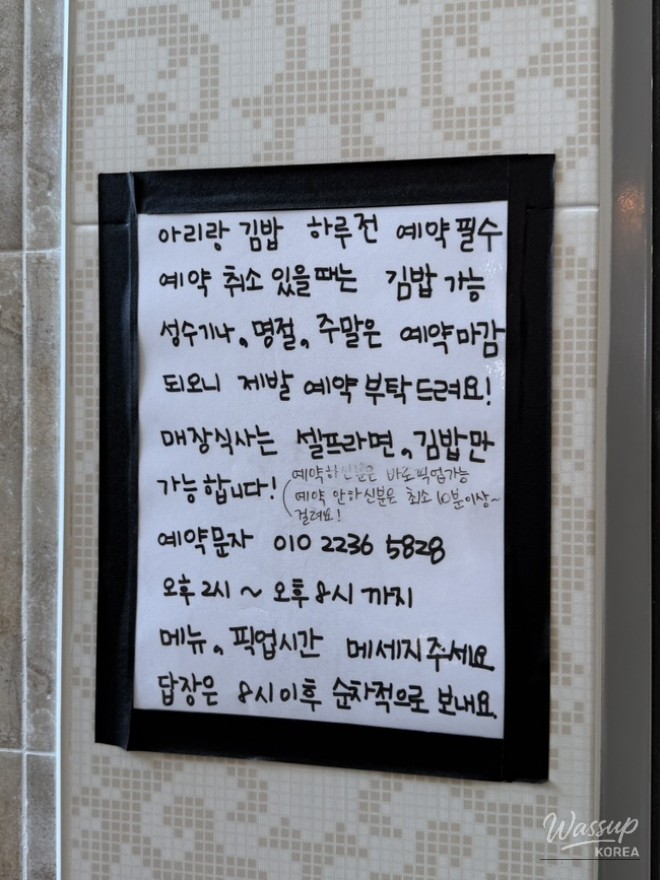 아리랑 김밥 하루전 예약 필수
예약 취소 있을때는 김밥 가능
성수기나, 명절, 주말은 예약마감
되오니 제발 예약 부탁드려요!
매장식사는 셀프라면, 김밥만
가능합니다!
(예약하신분은 바로픽업가능
예약 안하신분은 최소 10분이상~
걸려요!
예약문자 010 2236 5828
오후 2시 ~ 오후 8시 까지
메뉴, 픽업시간 메세지주세요
답장은 8시이후 순차적으로 보내요.
Wassup
KOREA